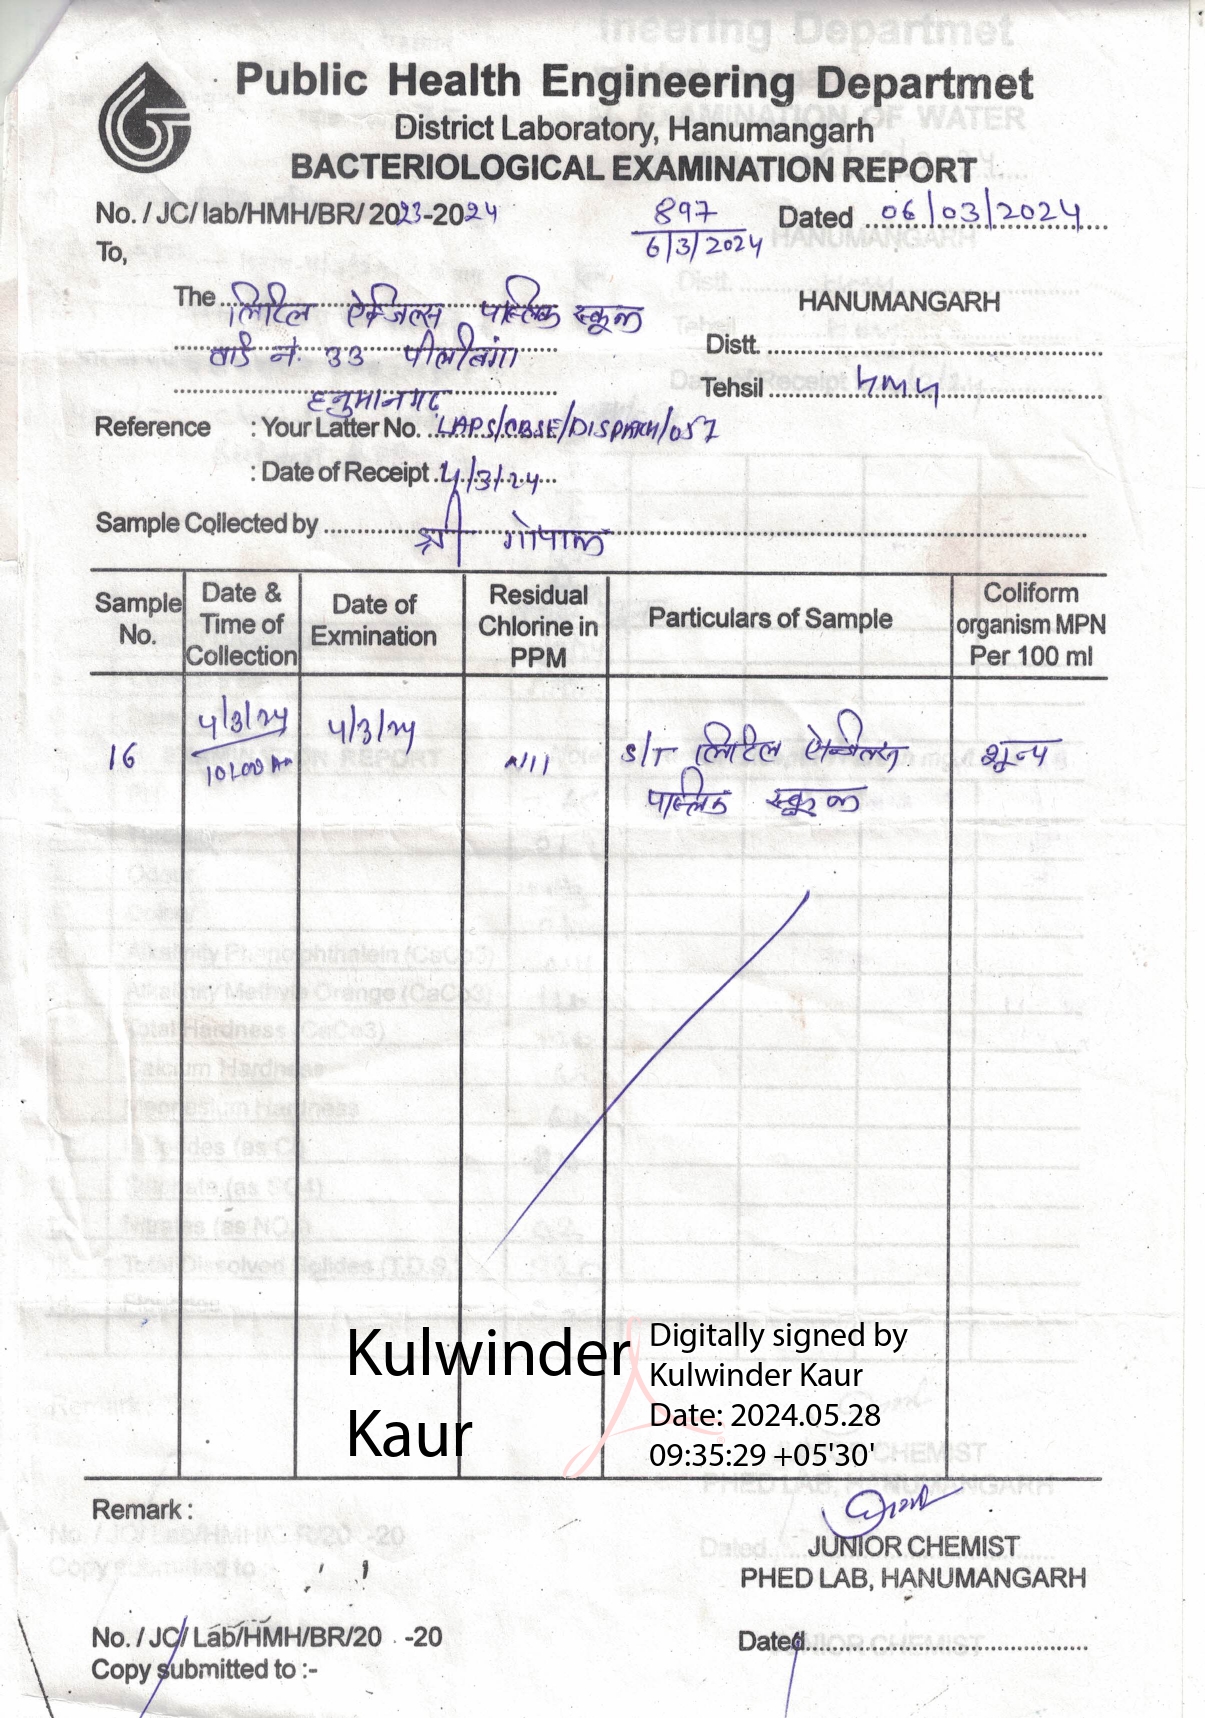 Public Health Engineering Departmet
District Laboratory, Hanumangarh
BACTERIOLOGICAL EXAMINATION REPORT
No. / JC/ lab/HMH/BR/ 2023-2024
897
6/3/2024
Dated 06/03/2024
To,
The लिटिल ऐन्जिल्स पब्लिक स्कूल
वार्ड नं. 33 पीलीबंगा
हनुमानगढ़
HANUMANGARH
Distt.
Tehsil HMH
Reference : Your Latter No. LAPS/CBSE/DISPATCH/057
: Date of Receipt 4/3/24
Sample Collected by श्री गोपाल
Sample No.
Date & Time of Collection
Date of Exmination
Residual Chlorine in PPM
Particulars of Sample
Coliform organism MPN Per 100 ml
16
4/3/24
10:00 Am
4/3/24
Nil
S/T लिटिल ऐन्जिल्स
पब्लिक स्कूल
शून्य
Kulwinder
Kaur
Digitally signed by
Kulwinder Kaur
Date: 2024.05.28
09:35:29 +05'30'
Remark :
JUNIOR CHEMIST
PHED LAB, HANUMANGARH
No. / JC/ Lab/HMH/BR/20 -20
Dated
Copy submitted to :-